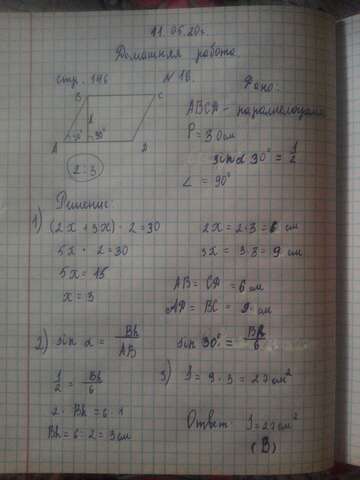 11.05.20г.
Домашняя работа
стр. 146 № 16
B C
A D
h
30° 90°
2:3
Дано:
ABCD - параллелограмм
P = 30 см
sin α 30° = 1/2
∠ = 90°
Решение:
1) (2x + 3x) · 2 = 30
5x · 2 = 30
5x = 15
x = 3
2x = 2·3 = 6 см
3x = 3·3 = 9 см
AB = CD = 6 см
AD = BC = 9 см
2) sin α = Bh/AB
sin 30° = Bh/6
1/2 = Bh/6
2 · Bh = 6 · 1
Bh = 6 : 2 = 3 см
3) S = 9 · 3 = 27 см²
Ответ: S = 27 см²
(B)